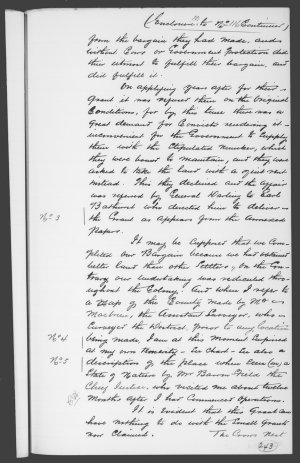 (Enclosure to No Continued)
from the bargain they had made, and
without Govr or Government Protection did
their utmost to fulfill their bargain, and
did fulfill it.
On applying years after for their
Grant it was refused them on the Original
Conditions, for by this time there was a
Great demand for Convicts rendering it
inconvenient for the Government to supply
them with the Stipulated number, which
they were bound to maintain, and they were
asked to take the Land with a quit rent
instead. This they declined and the Affair
was referred by General to Earl
Bathurst who directed him to deliver
the Grant as appears from the Annexed
No 3
Papers.
It may be supposed that we Com-
pleted our Bargain because we had obtained
better Land than other Settlers; on the Con-
trary our undertaking was ridiculed thro-
ughout the Colony, And when I refer to
a Map of the County made by Mr
the Assistant Surveyor, who
Surveyed the District prior to any location
No 4
being made, I am at this Moment surprised
at my own temerity. The Chart is also a
No 5
description of the place when seen in a
State of Nature by Mr Barron Field the
Chief Justice, who visited me about twelve
Months after I had Commenced Operations.
It is Evident that this Grant can
have nothing to do with the Small Grants
now Claimed.
The Cross Next
243